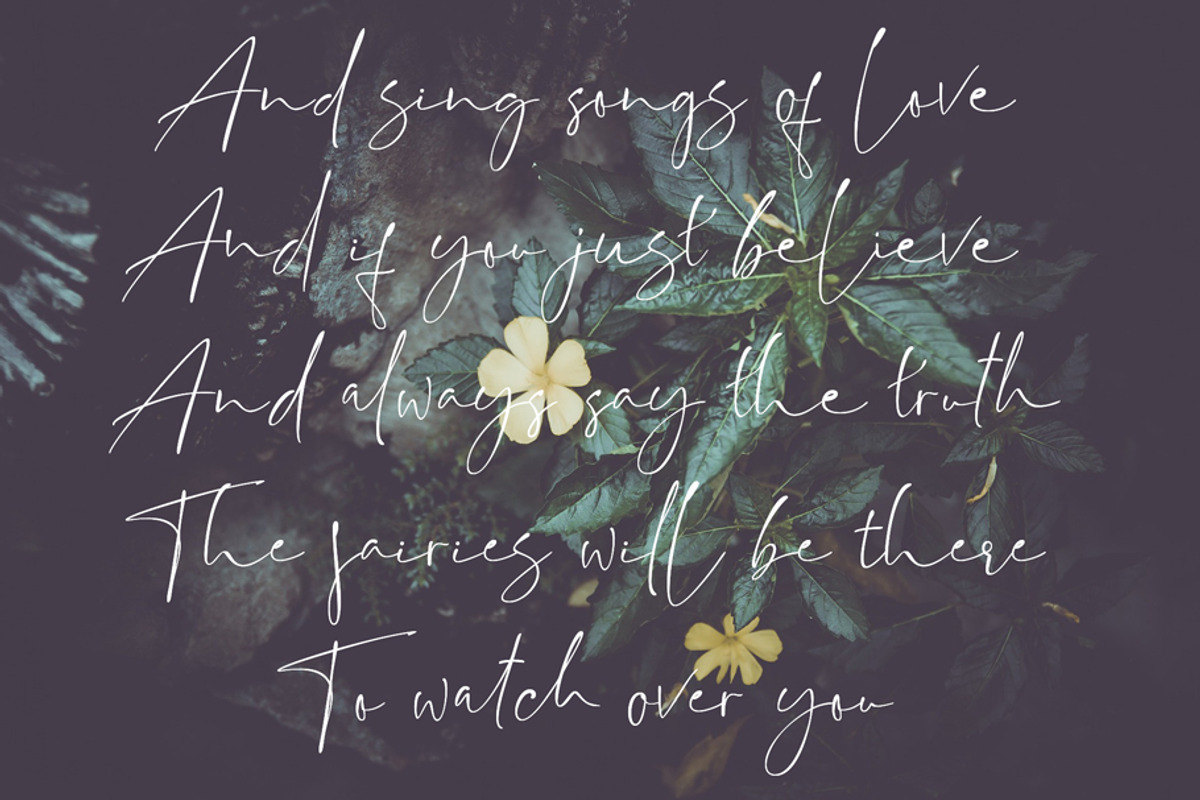 And sing songs of Love
And if you just believe
And always say the truth
The fairies will be there
To watch over you